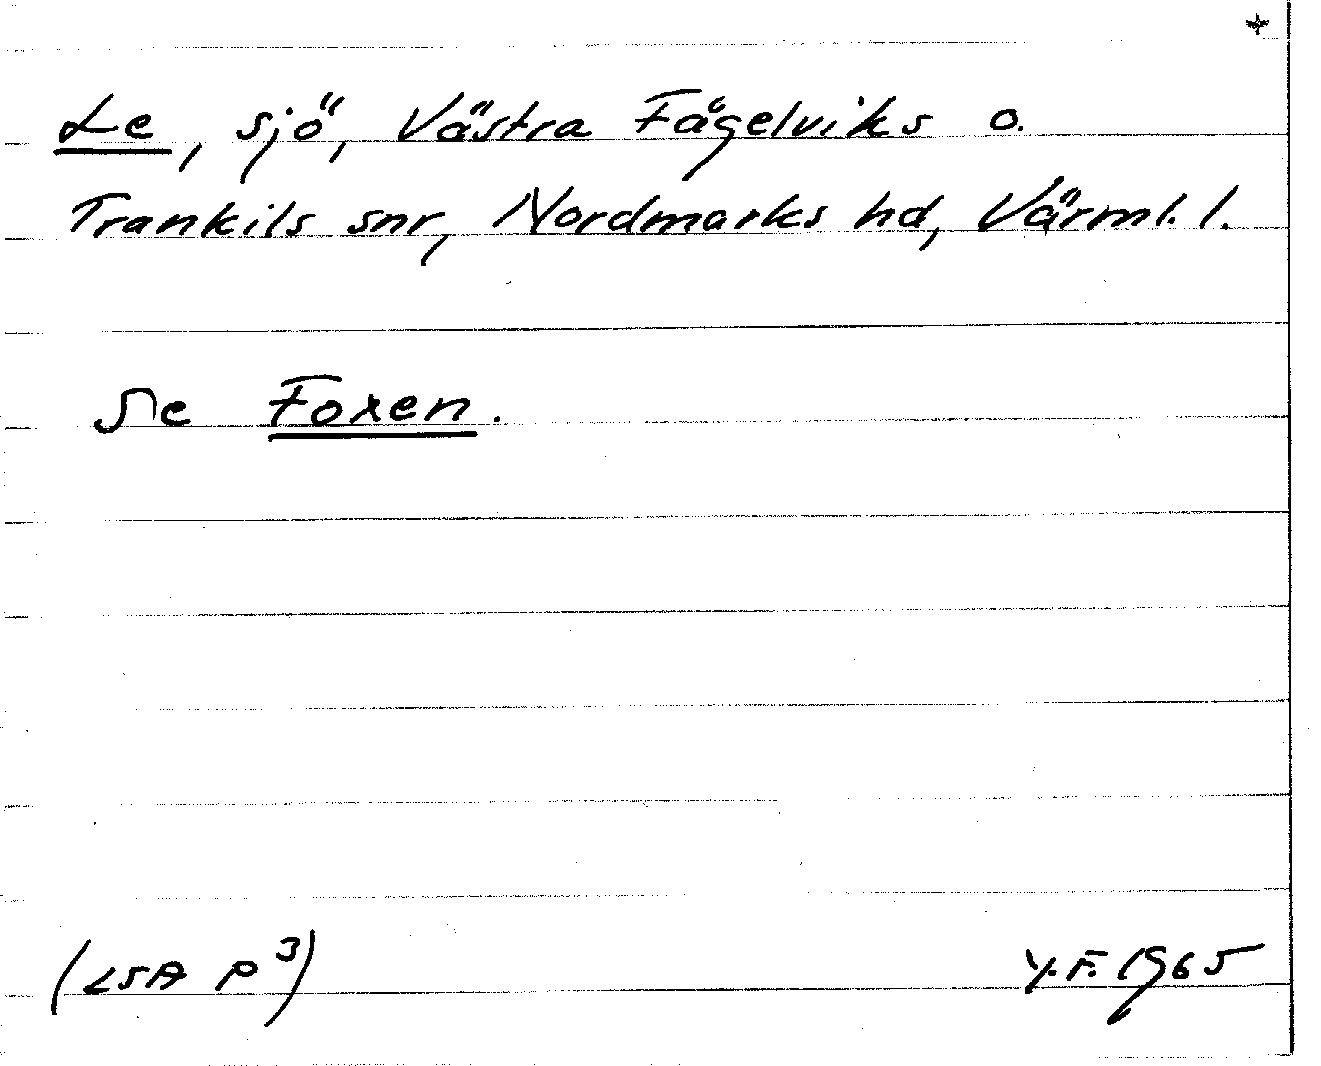 Le, sjö, Västra Fågelviks o.
Trankils snr, Nordmarks hd, Värml. l.
Se Foxen.
(LSA P³)
Y.F. 1965